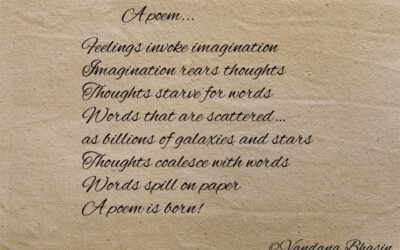 A poem...
Feelings invoke imagination
Imagination rears thoughts
Thoughts starve for words
Words that are scattered...
as billions of galaxies and stars
Thoughts coalesce with words
Words spill on paper
A poem is born!
©Vandana Bhasin